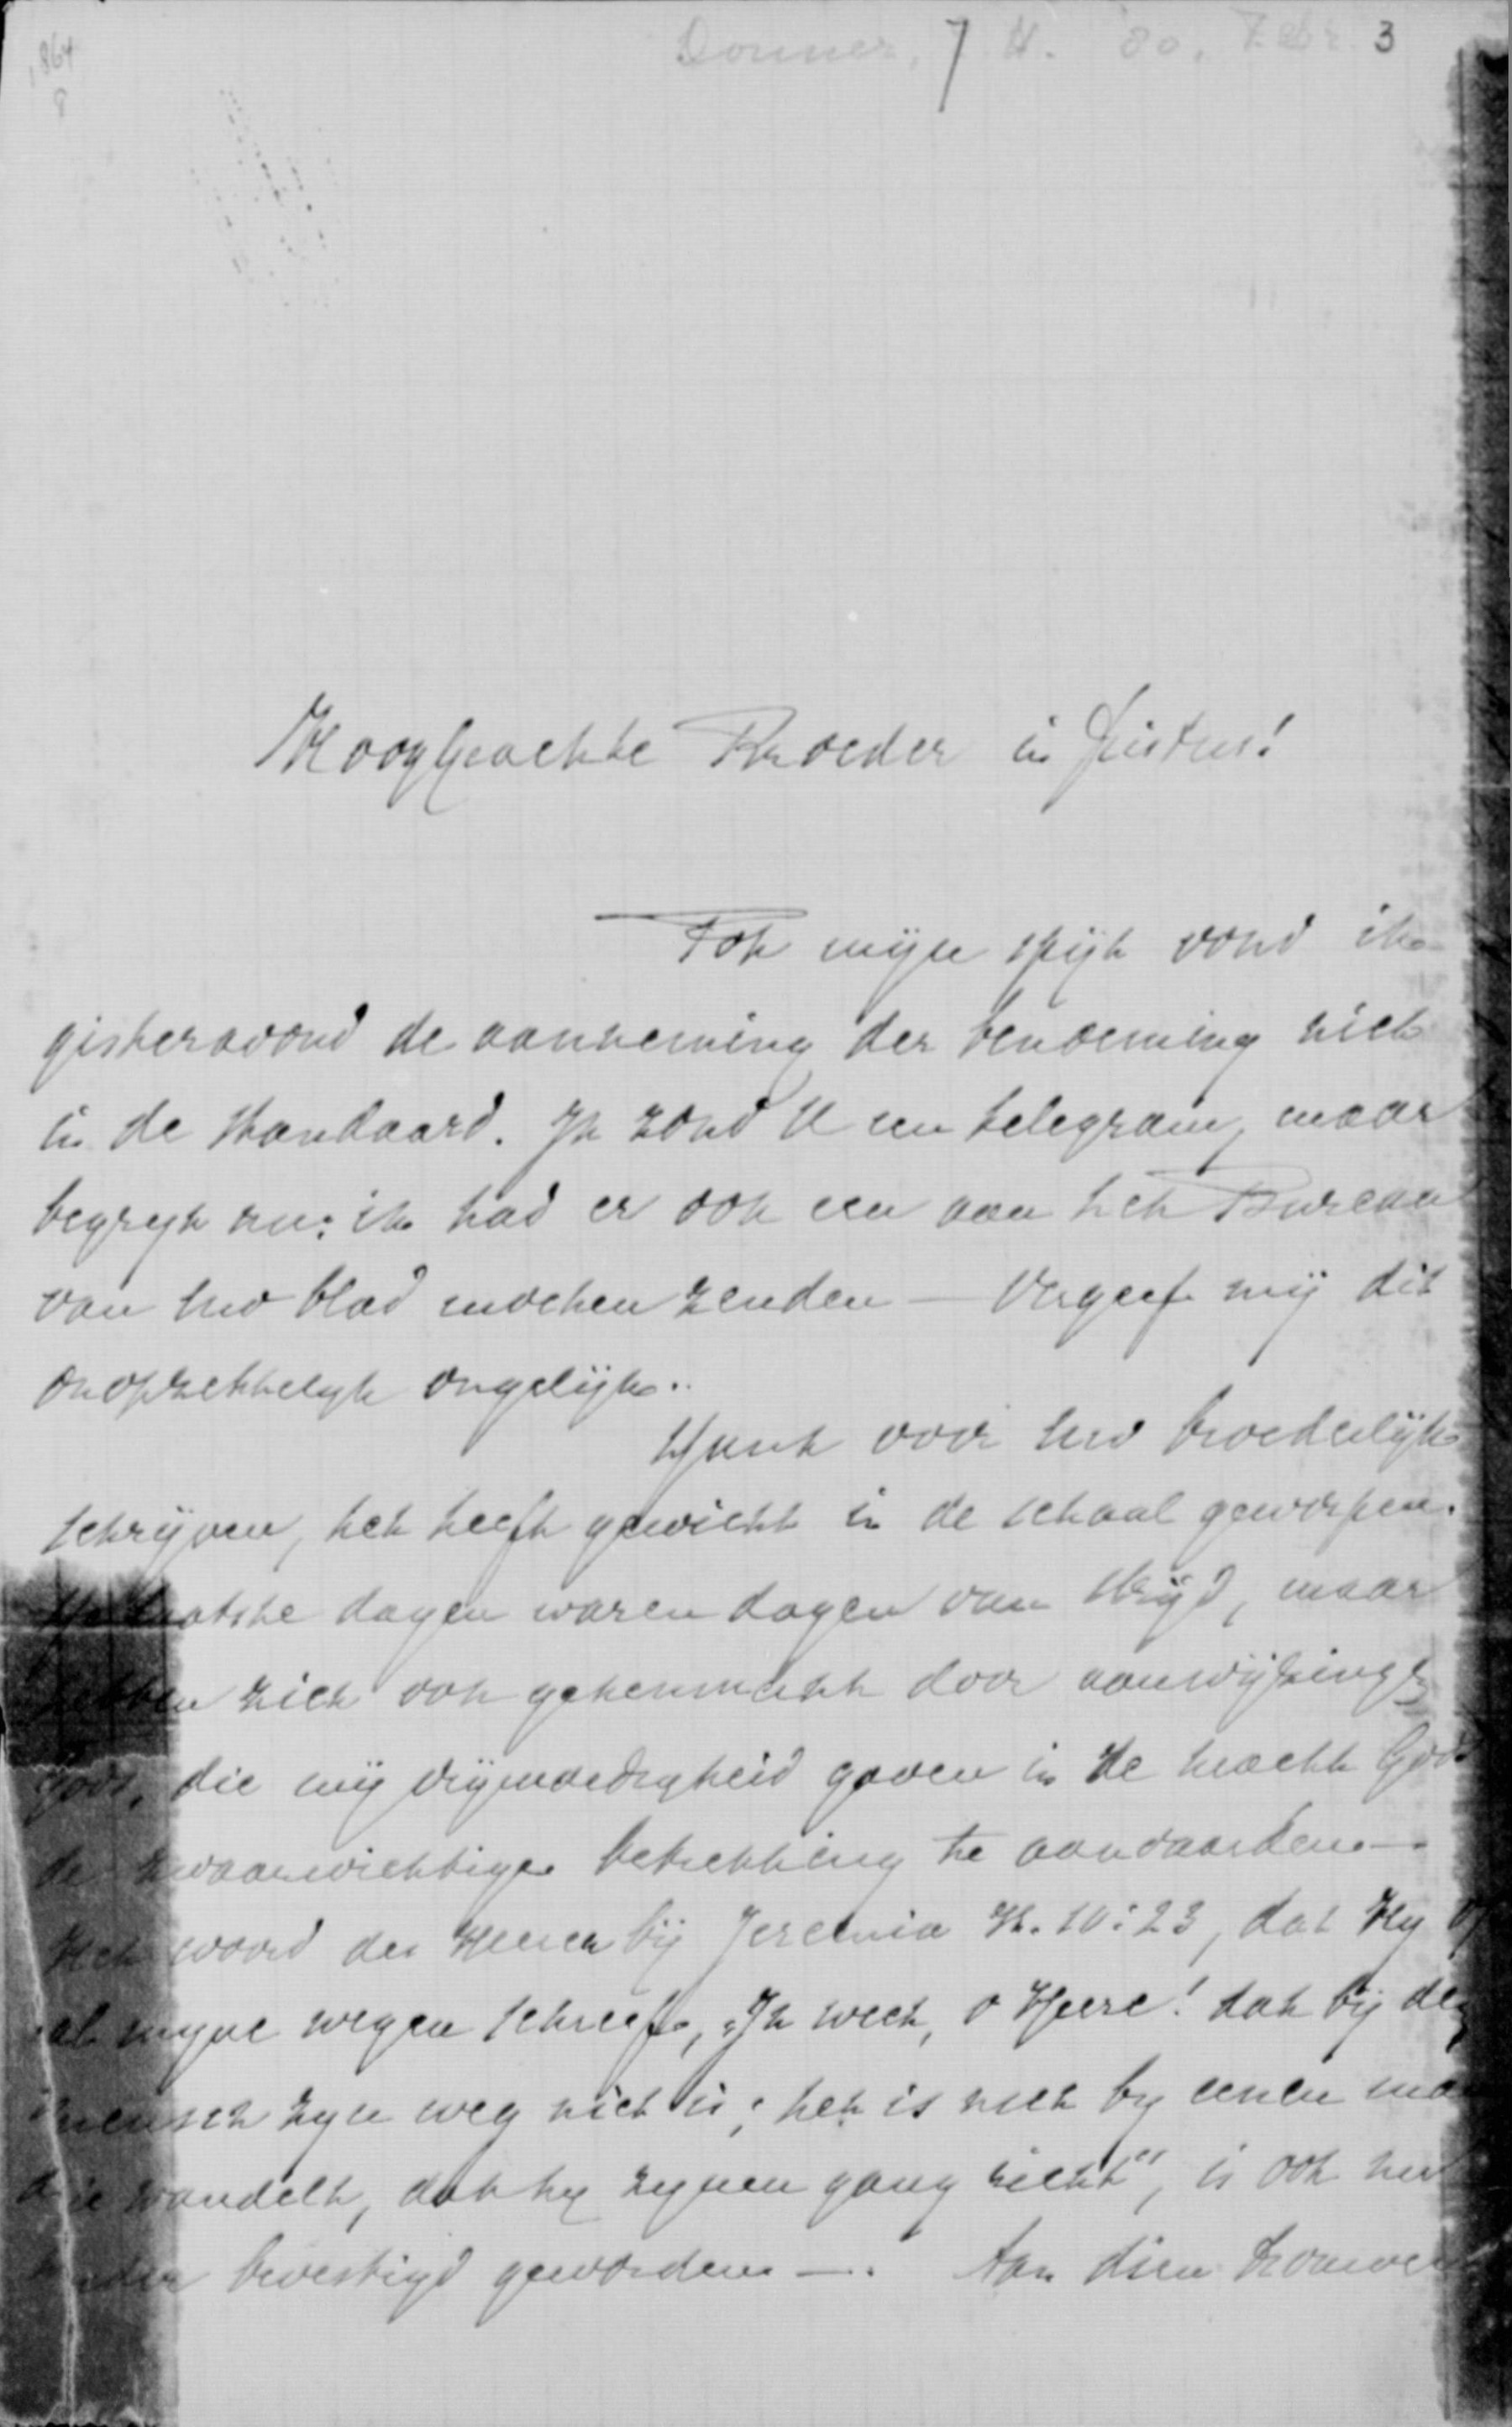 1864
8
Donner, J. H. 80. Febr. 3
Hooggeachte Broeder in Christus!
Tot mijn spijt vond ik
gisteravond de aanneming der benoeming niet
in de Standaard. Ik zond U een telegram, maar
begryp nu: ik had er ook een aan het Bureau
van Uw blad moeten zenden — Vergeef mij dit
onopzettelijk ongelijk.
Dank voor Uw broederlijk
schrijven, het heeft gewicht in de schaal geworpen.
De laatste dagen waren dagen van strijd, maar
hebben zich ook gekenmerkt door aanwijzingen
Gods, die mij vrijmoedigheid gaven in de kracht Gods
de zwaarwichtige betrekking te aanvaarden —
Het woord des Heeren bij Jeremia H. 10:23, dat Hy op
al myne wegen schreef, „Ik weet, o Heere! dat bij den
mensch zyn weg niet is; het is niet by eenen man
die wandelt, dat hy zynen gang richt", is ook nu
bevestigd geworden —. Aan dien trouwen